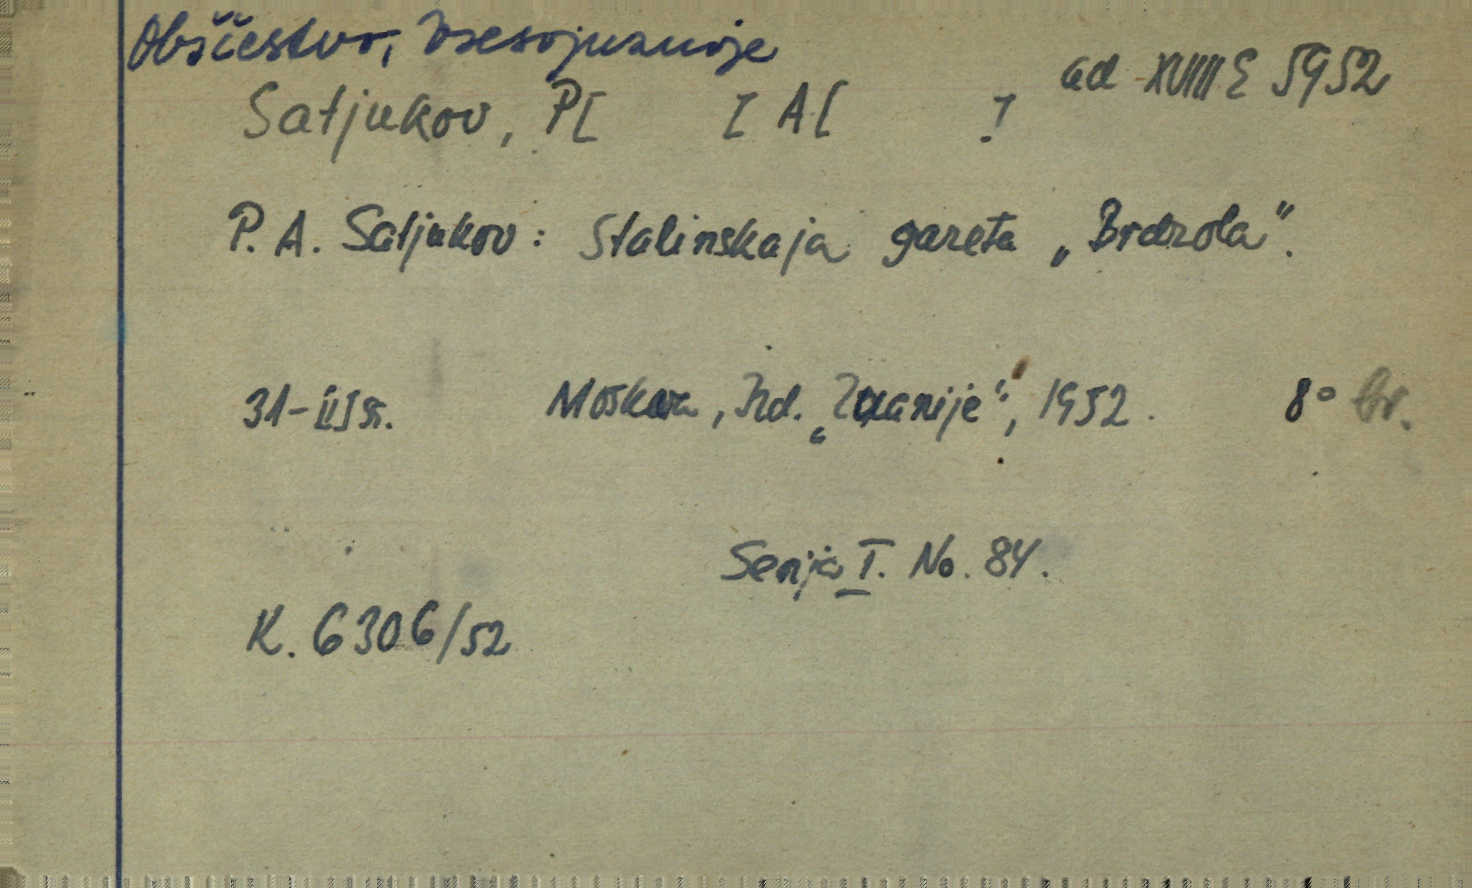 Obščestvo, Vsesojuznoje
ad XVIII E 5952
Satjukov, P[ ] A[ ].
P. A. Satjukov: Stalinskaja gazeta „Brdzola".
31-[1] s. Moskva, Izd. „Znanije", 1952. 8° br.
Serija I. No. 84.
K. 6306/52